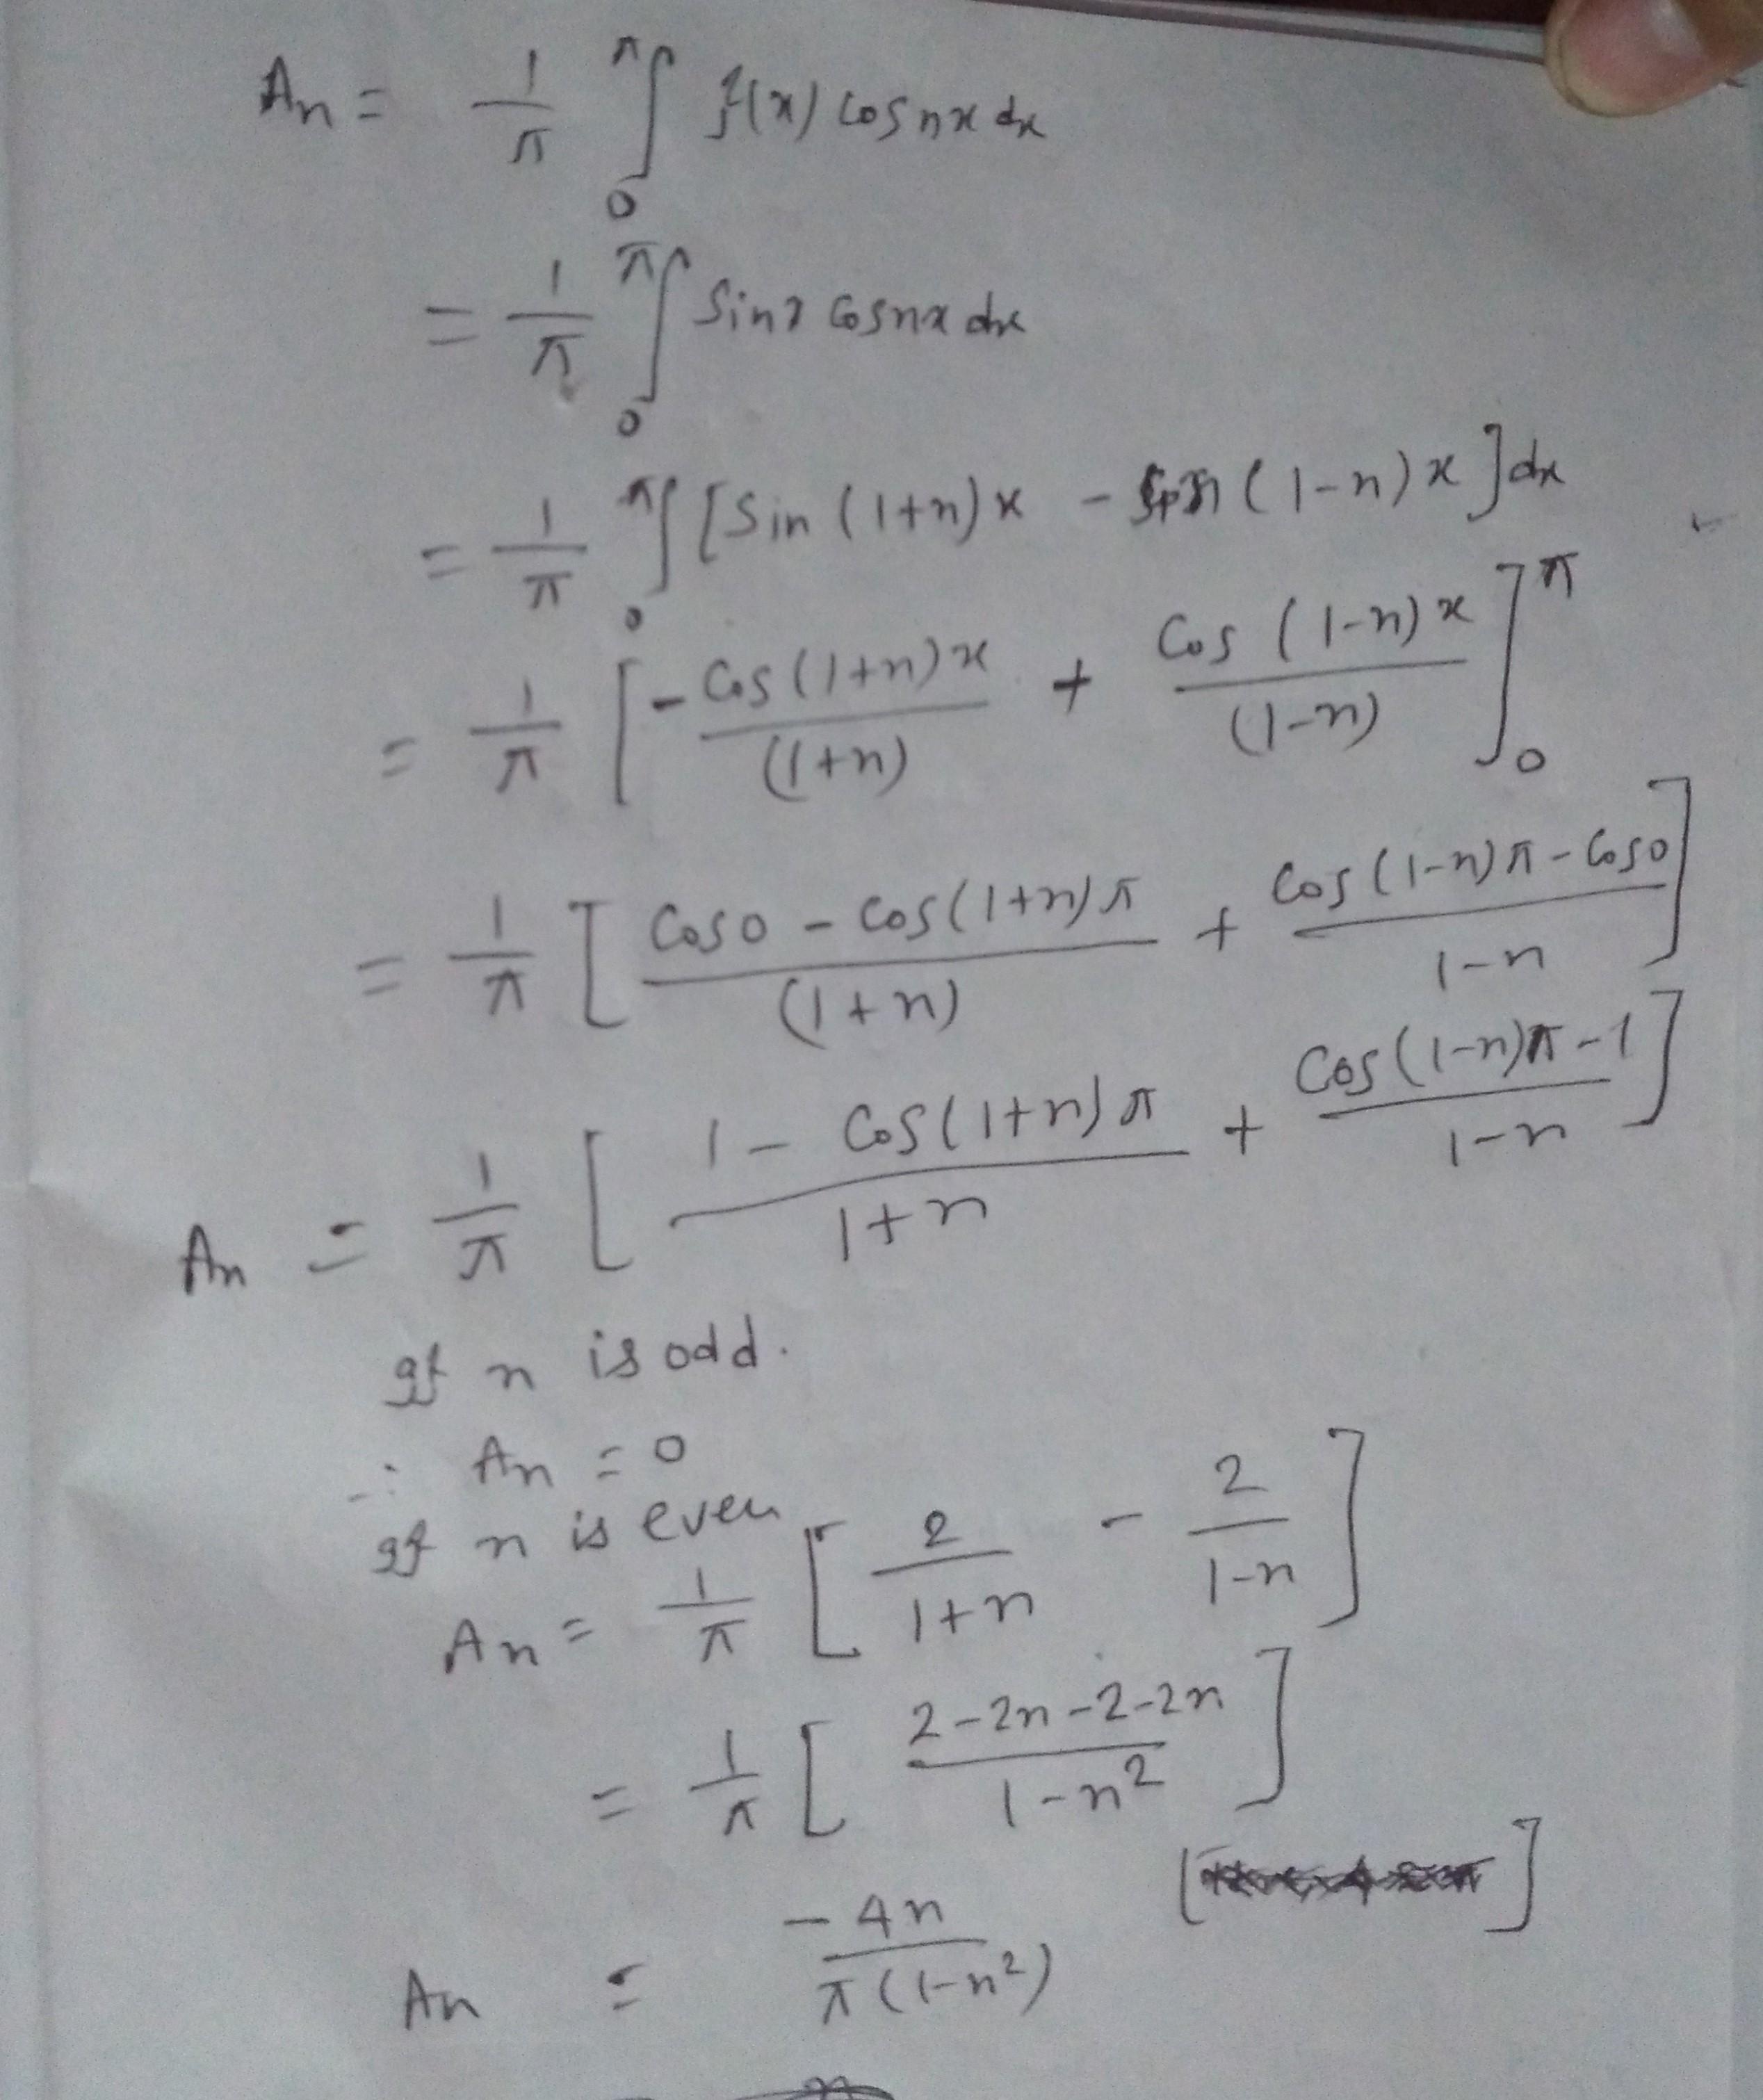 An = 1/π ∫₀^π f(x) cosnx dx
= 1/π ∫₀^π Sinx Cosnx dx
= 1/π ∫₀^π [Sin (1+n)x - Sin (1-n)x] dx
= 1/π [-Cos(1+n)x/(1+n) + Cos (1-n)x/(1-n)]₀^π
= 1/π [(Cos0 - Cos(1+n)π)/(1+n) + (Cos(1-n)π - Cos0)/(1-n)]
An = 1/π [(1 - Cos(1+n)π)/(1+n) + (Cos(1-n)π - 1)/(1-n)]
If n is odd.
∴ An = 0
If n is even
An = 1/π [2/(1+n) - 2/(1-n)]
= 1/π [(2-2n-2-2n)/(1-n²)]
An = -4n/(π(1-n²)) [ ]